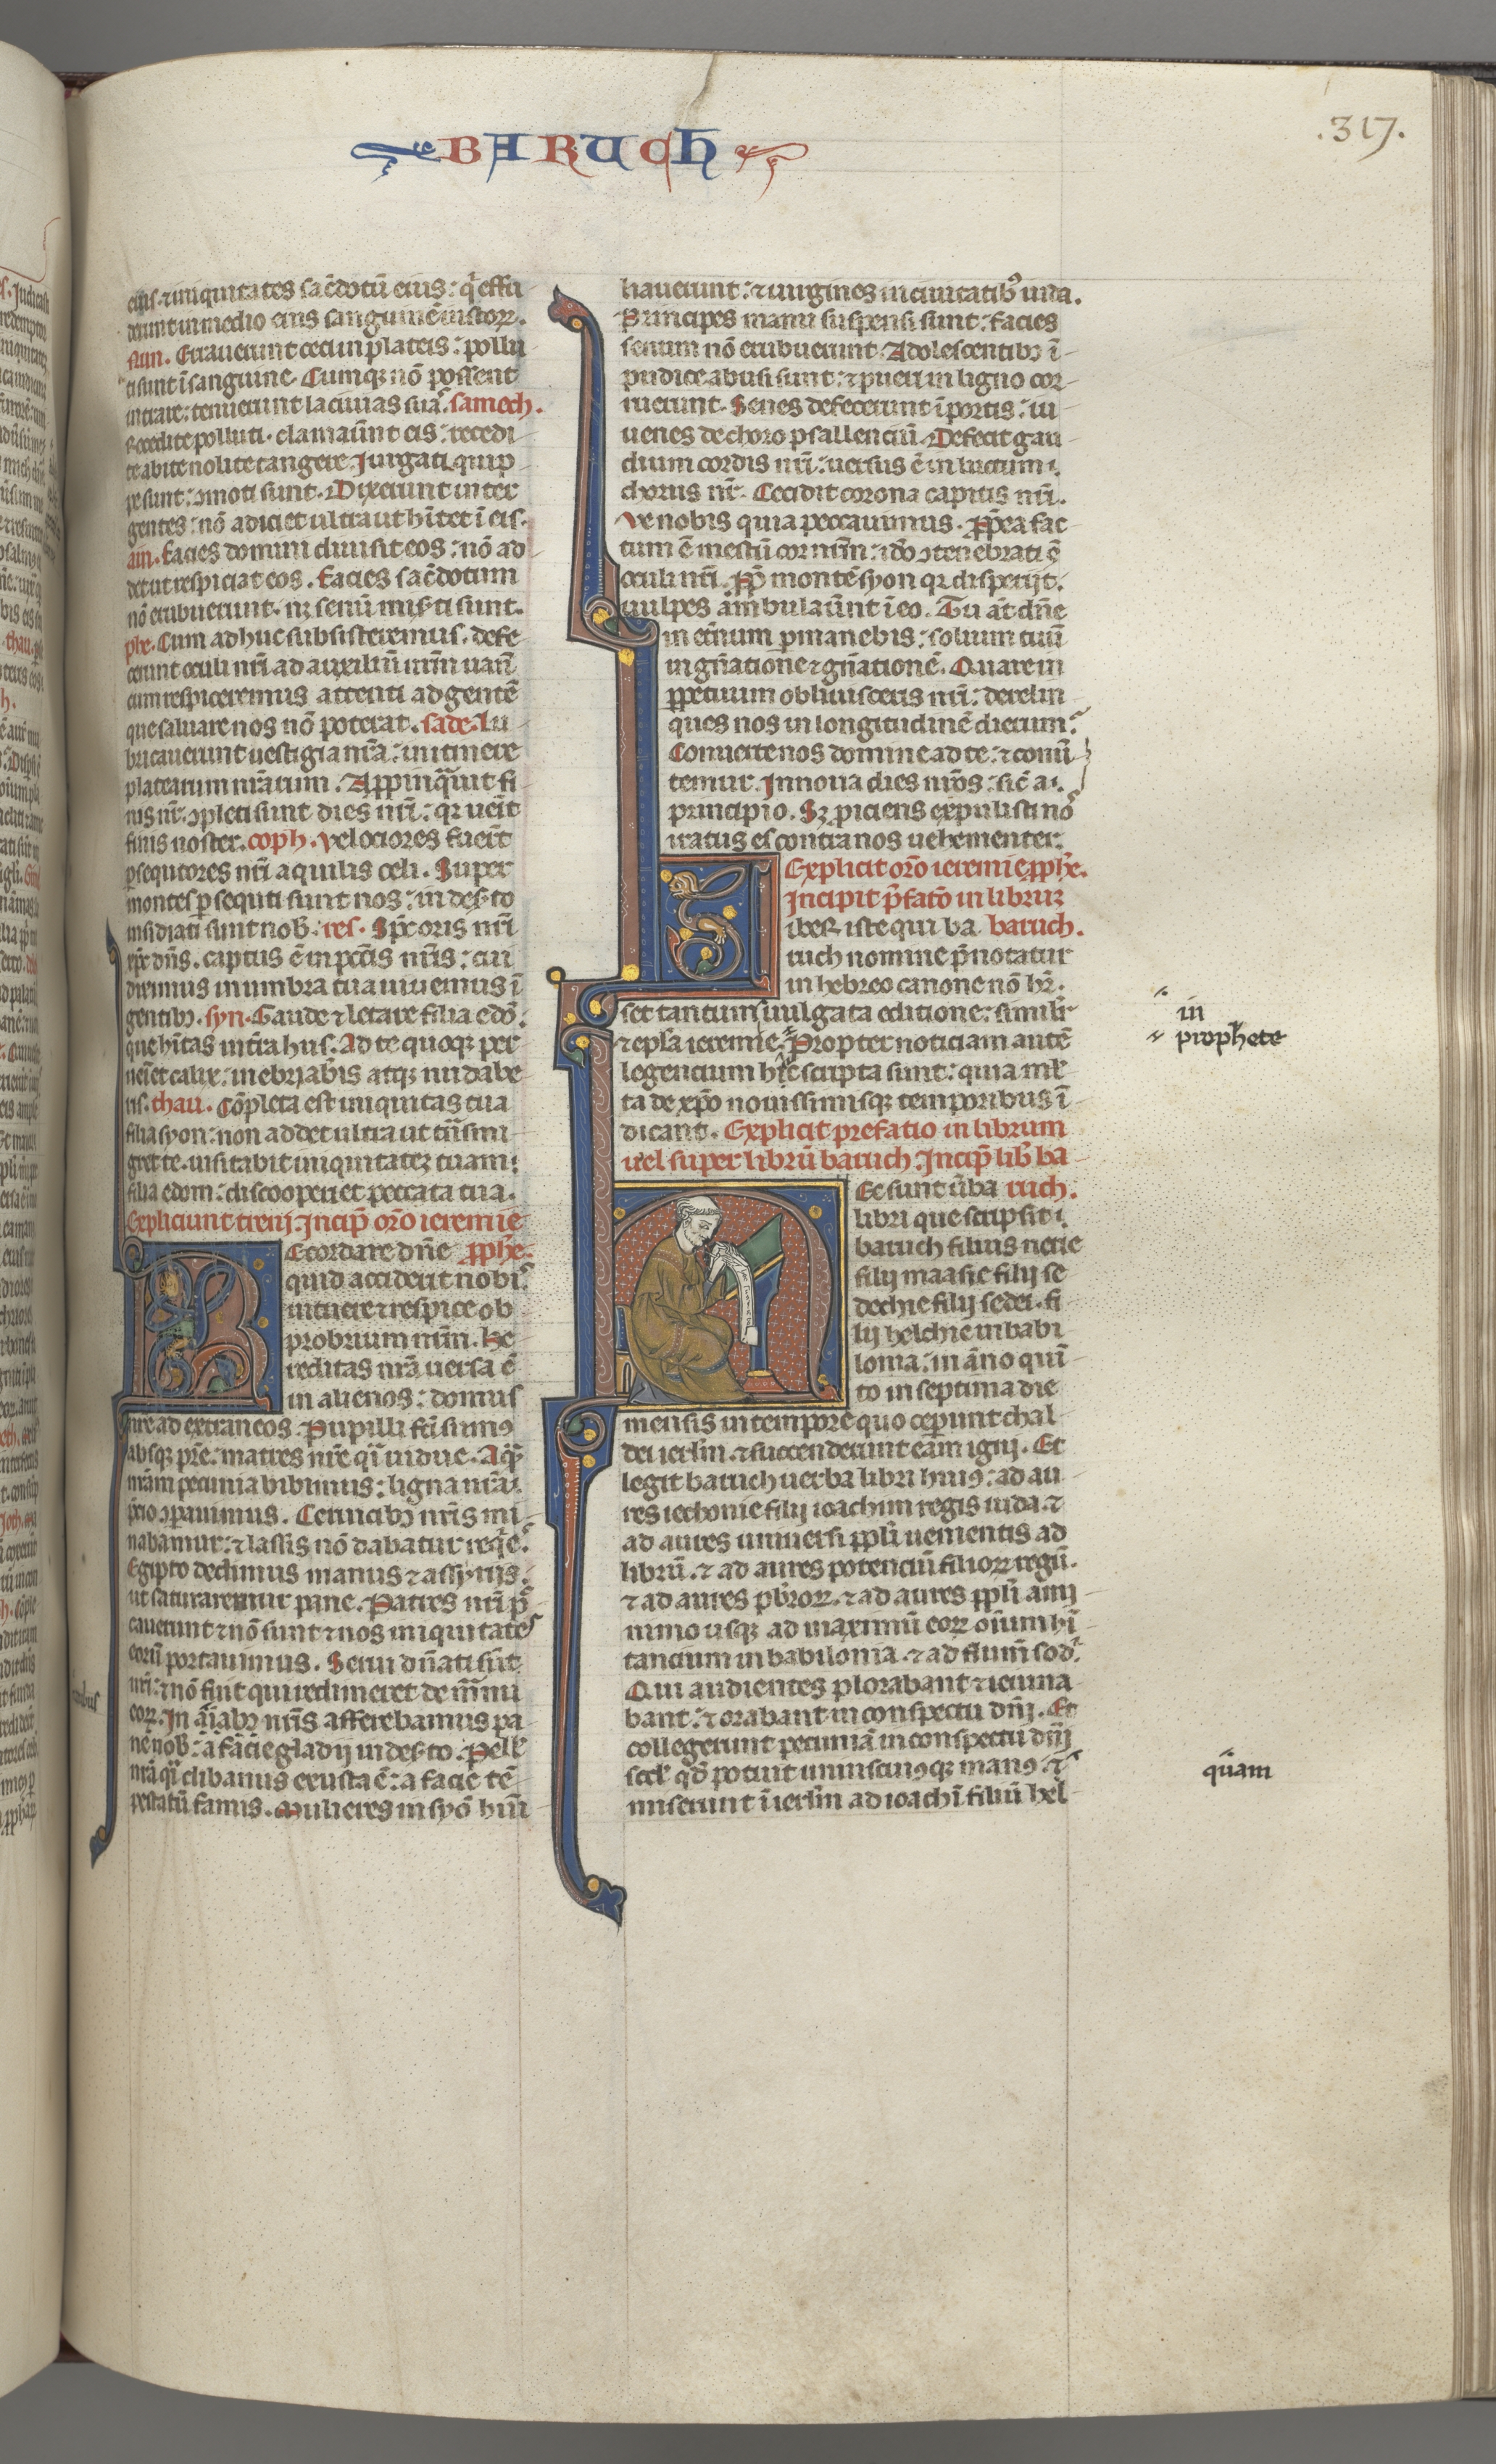 BARUCH
.317.
eius. ⁊ iniquitates sac̄dotū eius: q̓ effu
derunt in medio eius sanguinē iustoꝝ.
nun. Errauerunt ceci in plateis: pollu
ti sunt ī sanguine. Cumqꝫ nō possent
intrare: tenuerunt lacinias suas. samech.
Recedite polluti. clamauer̄nt eis: recedi
te abite nolite tangere. Jurgati quip
pe sunt: ꝯmoti sunt. Dixerunt inter
gentes: nō adiciet ultra ut hītet ī eis.
ain. facies domini diuisit eos: nō ad
det ut respiciat eos. facies sac̄dotum
nō erubuerunt. nꝫ senū mis̄ti sunt.
phe. Cum adhuc subsisteremus. defe
cerunt oculi nr̄i ad auxiliū nr̄m uanū
cum respiceremus attenti ad gentē
que saluare nos nō poterat. sade. Lu
bricauerunt uestigia nr̄a: in itinere
platearum nr̄arum. Appinq̄uit fi
nis nr̄. ꝯpleti sunt dies nr̄i: qr uenit
finis noster. coph. Velociores fuer̄t
ꝑsequtores nr̄i aquilis celi. Super
montes ꝑsequti sunt nos: in deserto
insidiati sunt nob̄. res. Sp̄c oris nr̄i
xp̄c dn̄s. captus ē in pcc̄is nr̄is: cui
diximus in umbra tua uiuemus ī
gentibꝫ. syn. Gaude ⁊ letare filia edō:
que hītas in t̄ra hus. Ad te quoqꝫ per
ueniet calix: inebriab̓is atqꝫ nudabe
ris. thau. Cōpleta est iniquitas tua
filia syon: non addet ultra ut trāsmi
gret te. uisitabit iniquitatēꝫ tuam:
filia edom: discooperiet peccata tua.
Expliciunt treni. Incip̄ or̄o ieremie
Recordare dn̄e ꝓphē.
quid acciderit nobis:
intuere ⁊ respice ob
probrium nr̄m. He
reditas nr̄a uersa ē
in alienos: domus
nr̄e ad extraneos. Pupilli fc̄i sumꝰ
absqꝫ pr̄e: matres nr̄e q̄i uidue. Aq̄ꝫ
nr̄am pecunia bibimus: ligna nr̄a
p̄cio ꝯparauimus. Ceruicibꝫ nr̄is mi
nabamur: ⁊ lassis nō dabatur req̓es.
Egipto dedimus manus ⁊ assyriis.
ut saturaremur pane. Patres nr̄i pec
cauerunt ⁊ nō sunt ⁊ nos iniquitates
eorū portauimus. Serui dn̄ati sūt
nr̄i: ⁊ nō fuit qui redimeret de manu
eoꝝ. In āīabꝫ nr̄is afferebamus pa
nē nob̄: a facie gladij in deserto. Pell̓
nr̄a q̄i clibanus exusta ē: a facie tē
pestatū famis. Mulieres in syō humi
liauerunt: ⁊ uirgines in ciuitatibꝰ iuda.
Principes manu suspensi sunt: facies
senum nō erubuerunt. Adolescentibꝫ ī
pudice abusi sunt: ⁊ pueri in ligno cor
ruerunt. Senes defecerunt ī portis: iu
uenes de choro psallenciū. Defecit gau
dium cordis nr̄i: uersus ē in luctum
chorus nr̄. Cecidit corona capitis nr̄i.
Ve nobis quia peccauimus. Ꝓp̄ea fac
tum ē mestū cor nr̄m: ido ꝯtenebrati s̄
oculi nr̄i. Ꝓp̄ montē syon qr disperijt.
uulpes ambulauer̄nt ī eo. Tu at̄ dn̄e
in et̄num ꝑmanebis: solium tuū
in gn̄atione ⁊ gn̄ationē. Quare in
ꝑpetuum obliuisceris nr̄i: derelin
ques nos in longitudinē dierum.
Conuerte nos domine ad te: ⁊ conū
temur. Innoua dies nr̄os: sic̄ a
principio. Sꝫ piciens expulisti nos
iratus es contra nos uehementer.
Explicit or̄o ieremie ꝓphē.
Incipit p̄fatō in libruꝫ
iber iste qui ba baruch.
ruch nomine p̄notatur
in hebreo canone nō hr̄.
set tantum ī uulgata editione: simili
⁊ epl̄a ieremie. Propter noticiam autē
legencium hic scripta sunt: quia ml̓
ta de xp̄o nouissimisqꝫ temporibus ī
dicant. Explicit prefatio in librum
uel super librū baruch. Incip̄ lib̓ ba
Ec sunt ūba ruch.
libri que scripsit
baruch filius nerie
filij maasie filij se
dechie filij sedei. fi
lij helchie in babi
lonia: in āno quī
to in septima die
mensis in tempore quo ceperunt chal
dei ierl̄m. ⁊ succenderunt eam igni. Et
legit baruch uerba libri huiꝰ: ad au
res iechonie filij ioachim regis iuda. ⁊
ad aures uniuersi ppl̄i uenientis ad
librū. ⁊ ad aures potenciū filioꝝ regū.
⁊ ad aures pb̓roꝝ. ⁊ ad aures ppl̄i a mi
nimo usqꝫ ad maximū eoꝝ oīum hī
tancium in babilonia. ⁊ ad flum̄ sodi.
Qui audientes plorabant ⁊ ieiuna
bant: ⁊ orabant in conspectu dn̄i. Et
collegerunt pecuniā in conspectu dn̄i
scd̓m qd̓ potuit uniuscuiꝰqꝫ manꝰ. ⁊
miserunt ī ierl̄m ad ioachī filiū hel
in
prophete
quam